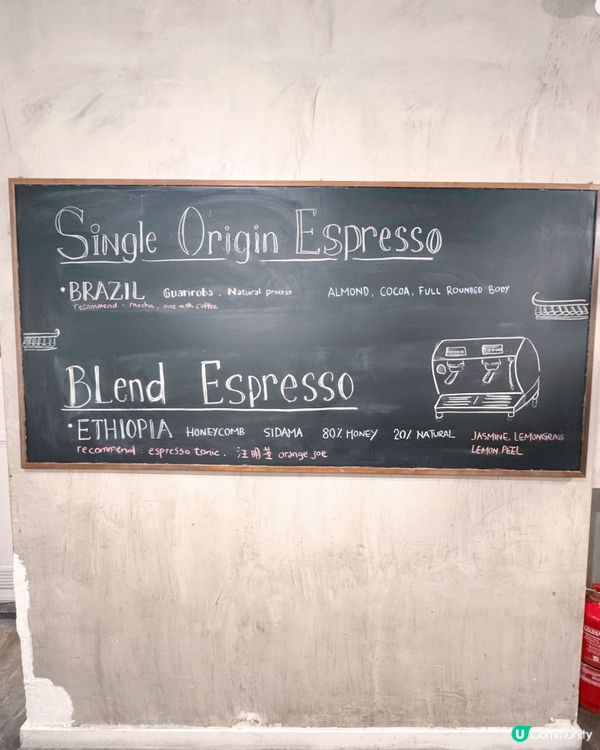 Single Origin Espresso
• BRAZIL Guariroba, Natural process ALMOND, COCOA, FULL ROUNDED BODY
recommend: mocha, oat milk coffee
BLend Espresso
• ETHIOPIA HONEYCOMB SIDAMA 80% HONEY 20% NATURAL JASMINE, LEMONGRASS
recommend: espresso tonic, 汪明荃 orange joe LEMON PEEL
U Community